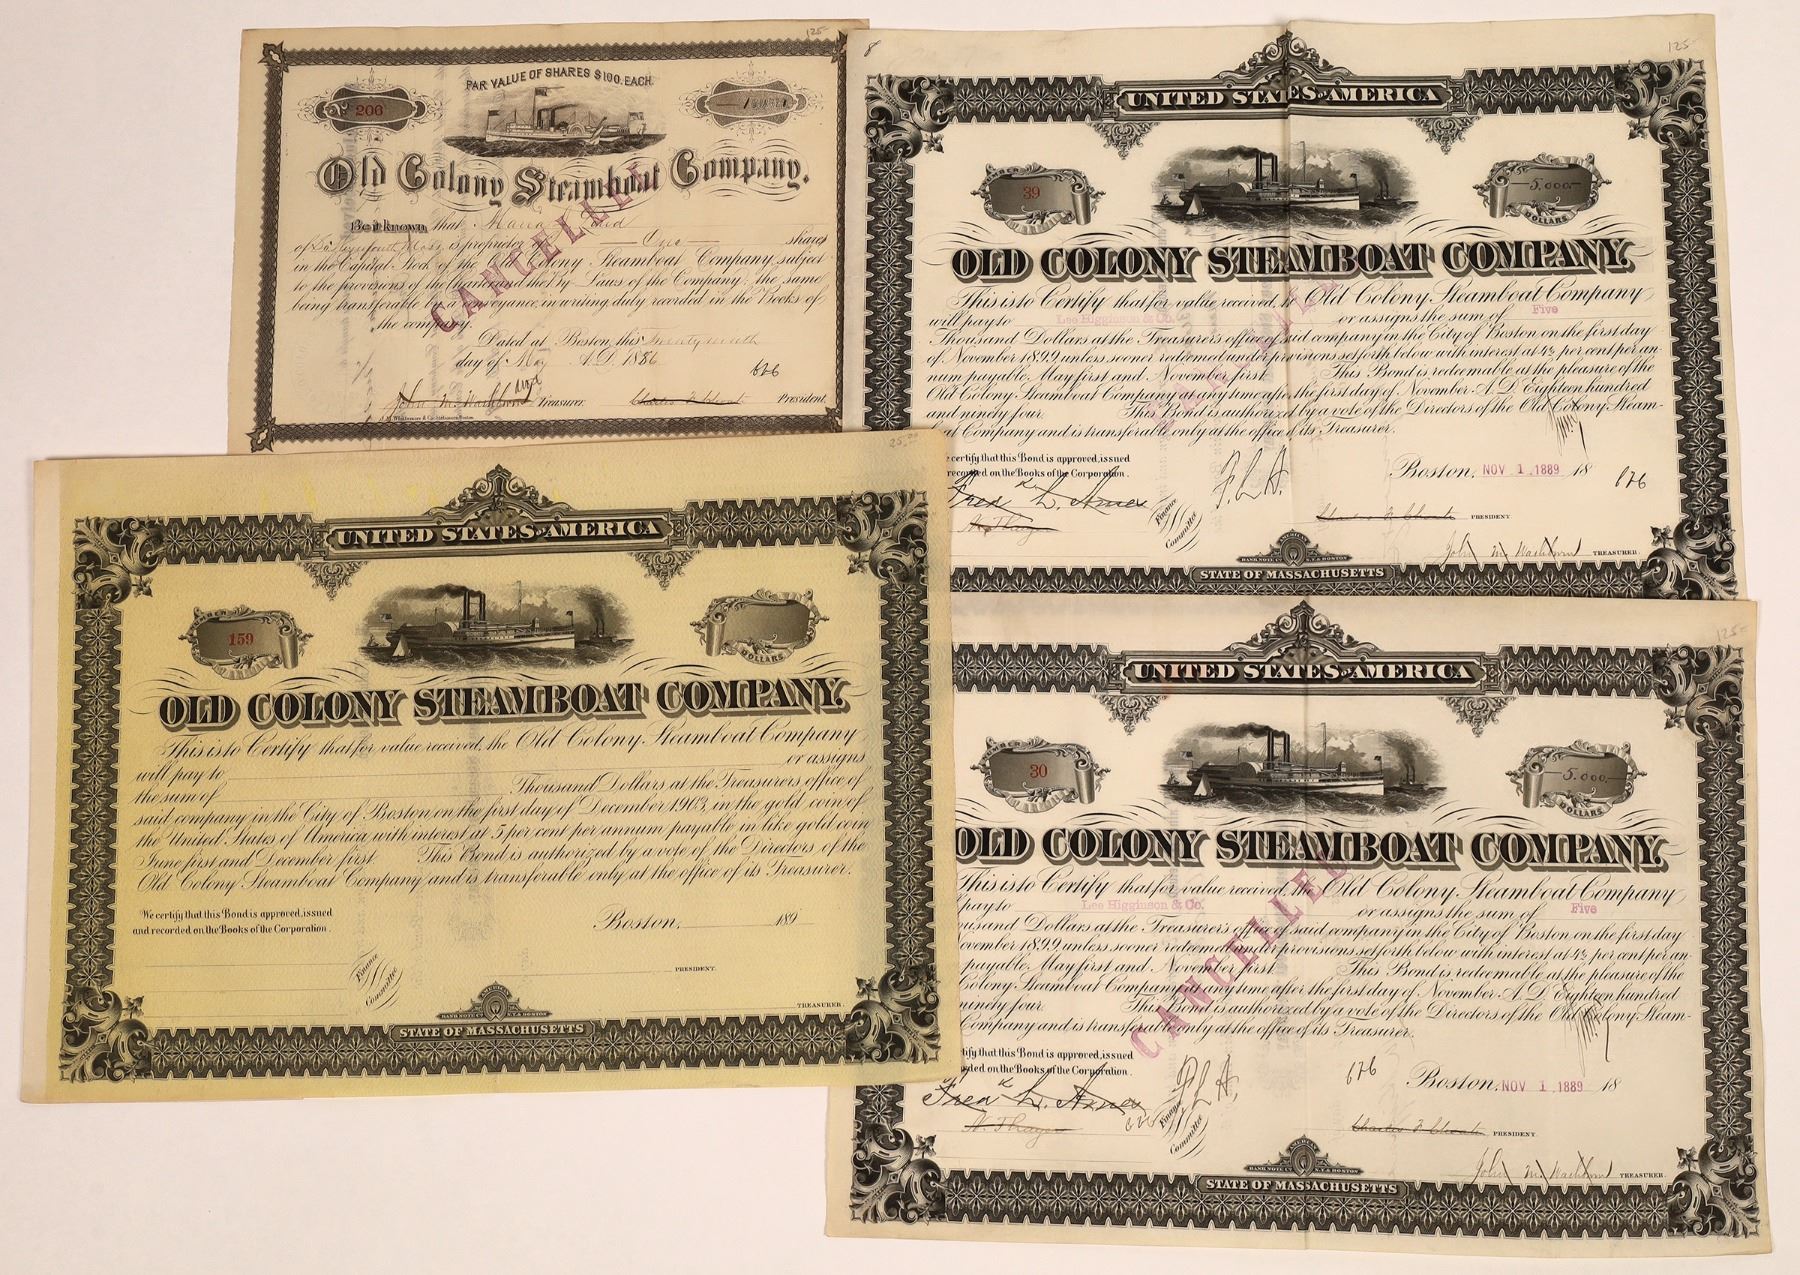 125-
PAR VALUE OF SHARES $100. EACH.
No 206
1 SHARES
Old Colony Steamboat Company.
Be it known that Maria
of So Weymouth Mass is proprietor of One shares
in the Capital Stock of the Old Colony Steamboat Company, subject
to the provisions of the Charter and the By-Laws of the Company: the same
being transferable by a conveyance in writing, duly recorded in the Books of
the company.
Dated at Boston, this
day of May A.D. 1886
626
John M. Washburn Treasurer. Charles F. Choate President.
CANCELLED
8
125-
UNITED STATES OF AMERICA
NUMBER 39
5,000-
DOLLARS
OLD COLONY STEAMBOAT COMPANY.
This is to Certify that for value received, the Old Colony Steamboat Company
will pay to Lee Higginson & Co. or assigns the sum of Five
Thousand Dollars at the Treasurer's office of said company in the City of Boston on the first day
of November 1899, unless sooner redeemed under provisions set forth below with interest at 4½ per cent per an-
num payable May first and November first. This Bond is redeemable at the pleasure of the
Old Colony Steamboat Company at any time after the first day of November A.D. Eighteen hundred
and ninety four. This Bond is authorized by a vote of the Directors of the Old Colony Steam-
boat Company and is transferable only at the office of its Treasurer.
certify that this Bond is approved, issued
recorded on the Books of the Corporation.
Boston, NOV 1 1889 18
626
Fred L. Ames
F.L.A.
N. Thayer
Finance Committee
Charles F. Choate PRESIDENT
John M. Washburn TREASURER.
AMERICAN BANK NOTE CO. N.Y. & BOSTON
STATE OF MASSACHUSETTS
25.00
UNITED STATES OF AMERICA
NUMBER 159
DOLLARS
OLD COLONY STEAMBOAT COMPANY.
This is to Certify that for value received, the Old Colony Steamboat Company
will pay to or assigns
the sum of Thousand Dollars at the Treasurers office of
said company in the City of Boston on the first day of December 1903, in the gold coin of
the United States of America with interest at 5 per cent per annum payable in like gold coin
June first and December first. This Bond is authorized by a vote of the Directors of the
Old Colony Steamboat Company and is transferable only at the office of its Treasurer.
We certify that this Bond is approved, issued
and recorded on the Books of the Corporation.
Boston, 189
Finance Committee
PRESIDENT.
TREASURER.
AMERICAN BANK NOTE CO. N.Y. & BOSTON
STATE OF MASSACHUSETTS
125-
UNITED STATES OF AMERICA
NUMBER 30
5,000-
DOLLARS
OLD COLONY STEAMBOAT COMPANY.
This is to Certify that for value received, the Old Colony Steamboat Company
pay to Lee Higginson & Co. or assigns the sum of Five
Thousand Dollars at the Treasurer's office of said company in the City of Boston on the first day
November 1899, unless sooner redeemed under provisions set forth below with interest at 4½ per cent per an-
payable May first and November first. This Bond is redeemable at the pleasure of the
Colony Steamboat Company at any time after the first day of November A.D. Eighteen hundred
ninety four. This Bond is authorized by a vote of the Directors of the Old Colony Steam-
Company and is transferable only at the office of its Treasurer.
CANCELLED
certify that this Bond is approved, issued
recorded on the Books of the Corporation.
626
Boston, NOV 1 1889 18
Fred L. Ames
F.L.A.
N. Thayer
626
Finance Committee
Charles F. Choate PRESIDENT
John M. Washburn TREASURER.
AMERICAN BANK NOTE CO. N.Y. & BOSTON
STATE OF MASSACHUSETTS